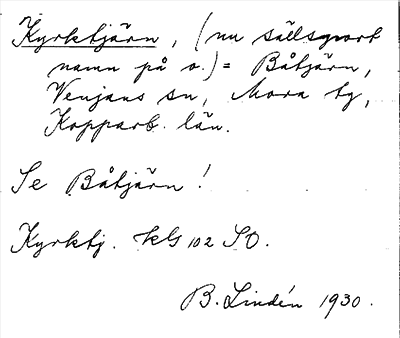 Kyrktjärn, (nu sällsport
namn på o.) = Båtjärn,
Venjans sn, Mora tg,
Kopparb. län.
Se Båtjärn!
Kyrktj. kbl 102 SO.
B. Lindén 1930.